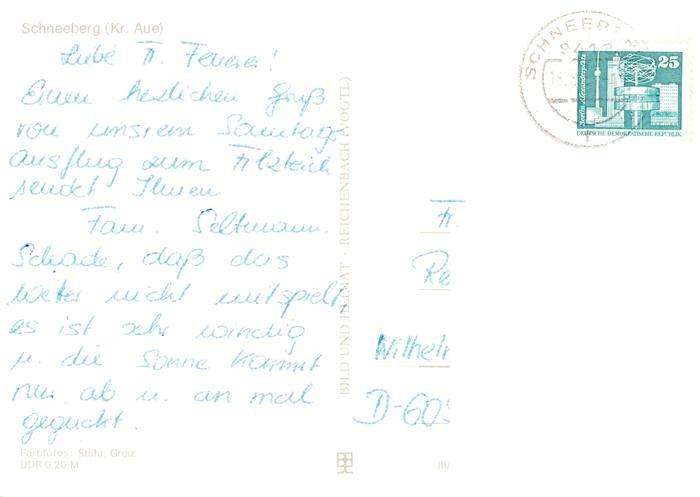 Schneeberg (Kr. Aue)
Liebe Fr. Feuerer!
Einen herzlichen Gruß
von unsrem Sonntags-
Ausflug zum Filzteich
sendet Ihnen
Fam. Seltmann.
Schade, daß das
Wetter nicht mitspielt,
es ist sehr windig
u. die Sonne kommt
nur ab u. an mal
geguckt.
Farbfotos: Stühr, Greiz
DDR 0,20 M
BILD UND HEIMAT · REICHENBACH (VOGTL)
III/
SCHNEEBER
25
Berlin, Alexanderplatz
DEUTSCHE DEMOKRATISCHE REPUBLIK
Fr.
Re
Wilhelm
D-605